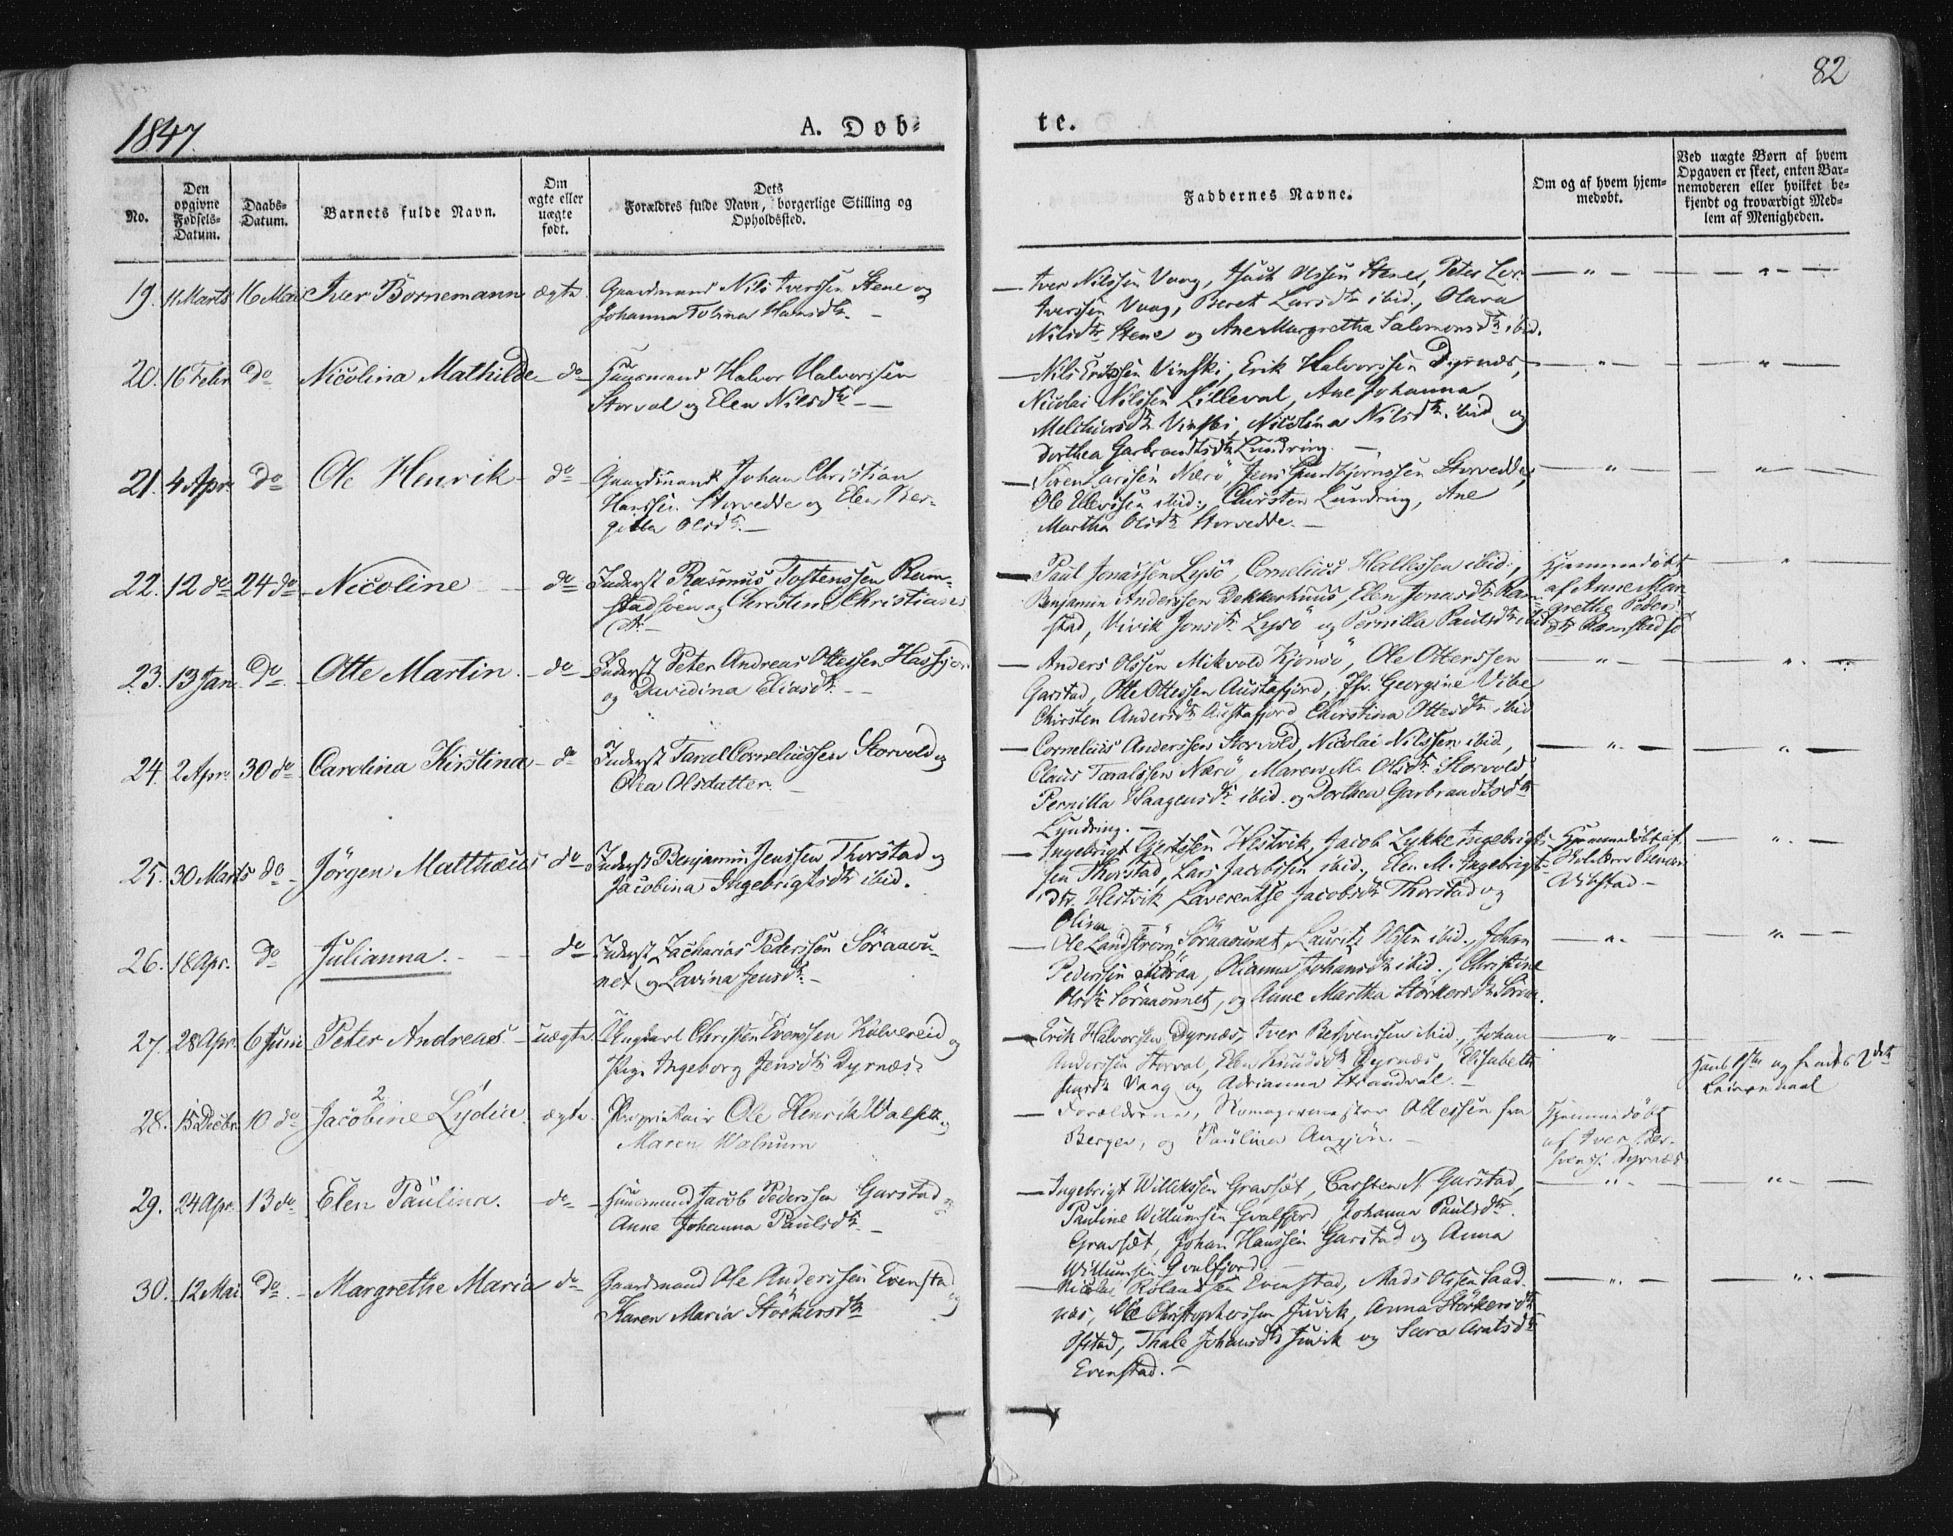 82
1847.
A. Døb-
te.
No.
Den opgivne Fødsels-Datum.
Daabs-Datum.
Barnets fulde Navn.
Om ægte eller uægte født.
Dets Forældres fulde Navn, borgerlige Stilling og Opholdssted.
Faddernes Navne.
Om og af hvem hjem-
medøbt.
Ved uægte Børn af hvem
Opgaven er skeet, enten Bar-
nemoderen eller hvilket be-
kjendt og troværdigt Med-
lem af Menigheden.
19. 11 Marts 16 Mai Iver Bornemann ægte Gaardmand Nils Iverssen Stene og
Johanna Tobina Hansdtr. –
– Iver Nilssen Vaag, Olssen Stene, Peter
Iverssen Vaag, Beret Larsdtr ibid., Olava
Nilsdtr Stene og Ane Margretha Salomonsdtr ibid.
20. 16 Febr do Nicolina Mathilde do Huusmand Halvor Halvorssen
Storval og Elen Nilsdtr –
– Nils Vinski, Erik Halvorssen Dyrnæs,
Nicolai Nilssen Lilleval, Ane Johanna
Melchiorsdtr Vinski, Nicolina Nilsdtr ibid og
Dorthea Garbrandtsdtr Lundring. –
21. 4 Apr. do Ole Henrik do Gaardmand Johan Christian
Hanssen Storvedde og Elen Ber-
gitta Olsdtr. –
– Soren Larssen Nærö, Jens Storvedde,
Ole Ellevssen ibid., Chirsten Lundring, Ane
Martha Olsdtr Storvedde. –
22. 12 do 24 do Nicoline do Inderst Rasmus Tostenssen Ram-
stadsöen og Christina Christians
dtr. –
– Paul Jonassen Lysö, Cornelius Hallessen ibid.,
Benjamin Anderssen Dekkerhuus, Elen Jonasdtr Ram-
stad, Vivik Jonsdtr Lysö og Pernilla Paulsdtr ibid
Hjemmedøbt
af Anne Mar-
grethe Peders
dtr Ramstadsö
23. 13 Jan. do Otte Martin do Inderst Peter Andreas Ottessen
og Davidina Eliasdtr. –
– Anders Olssen Mikvold Kjönsö, Ole Otterssen
Garstad, Otte Ottessen Austafjord, Jfr. Georgine Vibe,
Chirsten Andersdtr Austafjord, Chirstina Ottesdtr ibid
24. 2 Apr. 30 do Carolina Kirstina do Inderst Taral Corneliussen Storvold og
Olea Olsdatter. –
– Cornelius Anderssen Storvold, Nicolai Nilssen ibid,
Claus Taralssen Nærö, Maren M. Olsdtr Storvold
Pernilla Haagensdtr ibid. og Dorthea Garbrandtsdtr
Lundring. –
25. 30 Marts do Jörgen Matthæus do Inderst Benjamin Jenssen Thorstad og
Jacobina Ingebrigtsdtr ibid.
– Ingebrigt Gjertsen Hestvik, Jacob Lykke Ingebrigt-
sen Thorstad, Lars Jacobssen ibid., Elen M. Ingebrigts-
dtr. Hestvik, Laverentse Jacobsdtr Thorstad og
Olina
Hjemmedøbt af
Skolelærer
Vibstad –
26. 18 Apr. do Julianna. do Inderst Zacharias Pederssen Söraavu-
net og Lavina Jensdtr. –
– Ole Landström Söraavunet, Laurits Olssen ibid., Johan
Pederssen, Olianna Johansdtr ibid., Christine
Olsdtr Söraavunet, og Anne Martha Störkersdtr
27. 28 Apr. 6 Juni Peter Andreas uægte Ungkarl Christen Evenssen Kolvereid og
Pige Ingeborg Jensdtr Dyrnæs.
– Erik Halvorsen Dyrnæs, Iver ibid, Johan
Anderssen Storval, Elen Dyrnæs, Elisabeth
Jensdtr Vaag og Adrianna Strandval. –
Hans 1ste og hendes 2det
Leiermaal
28. 15 Decbr. 10 do Jacobine Lydia ægte. Proprietair Ole Henrik Walseth og
Maren Walnum
– Forældrene, Ottessen fra
Bergen, og Paulina Anzjön. –
Hjemmedøbt
af Iver
Dyrnæs
29. 24 Apr. 13 do Elen Paulina. do Huusmand Jacob Pederssen Garstad og
Anne Johanna Paulsdtr –
– Ingebrigt Willikssen Grasset, Carsten N. Garstad,
Pauline Willumsen Gvalfjord, Johanna Paulsdtr.
Grasset, Johan Hanssen Garstad og Anna
Willumsen Gvalfjord. –
30. 12 Mai do Margrethe Maria do Gaardmand Ole Anderssen Evenstad og
Karen Maria Störkersdtr
– Nicolai Rolandssen Evenstad, Mads Olssen Saad-
næs, Ole Christopherssen Juvik, Anna Störkersdtr
Ofstad, Thale Johansdtr Juvik og Sara Aratsdtr
Evenstad. –